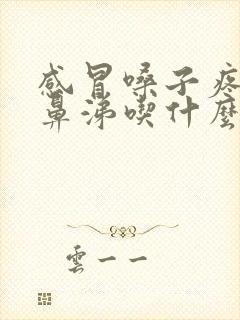 感冒嗓子疼
鼻涕喫什麼
雲一一